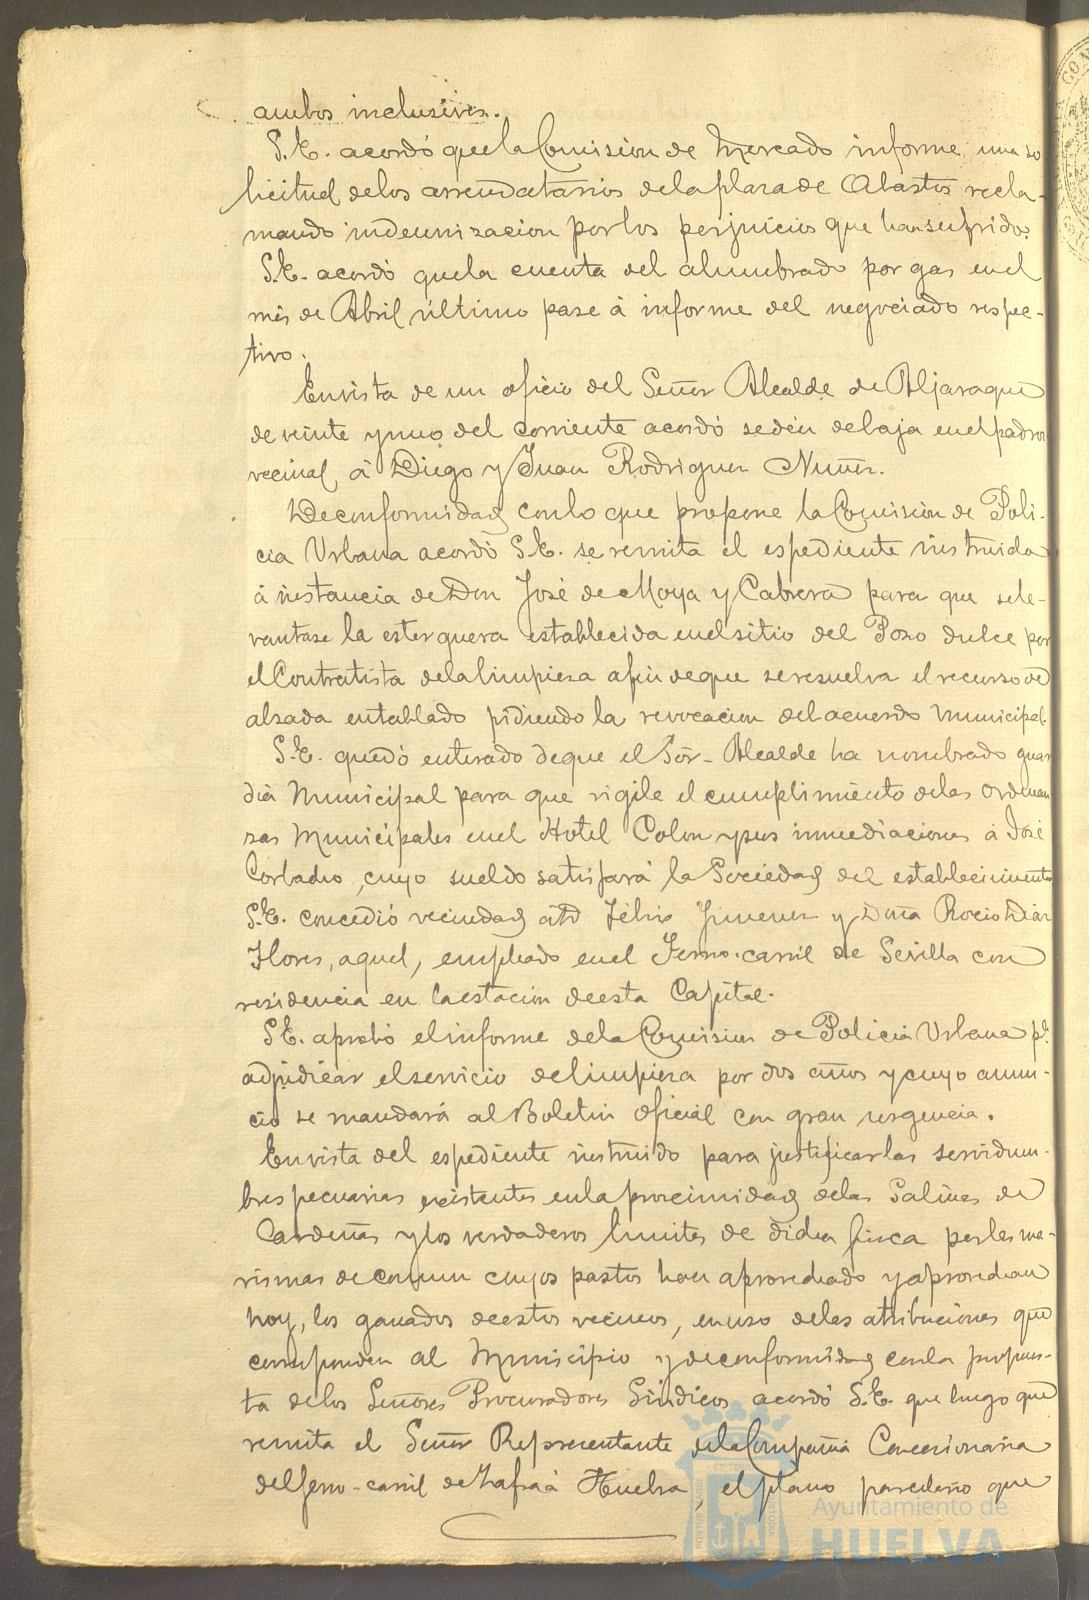 ambos inclusives.
S.E. acordó que la Comision de Mercado informe una so
licitud de los arrendatarios de la plaza de Abastos recla-
mando indemnizacion por los perjuicios que han sufrido.
S.E. acordó que la cuenta del alumbrado por gas en el
mes de Abril último pase á informe del negociado respec-
tivo.
En vista de un oficio del Señor Alcalde de Aljaraque
de veinte y uno del corriente acordó se den de baja en el padron
vecinal á Diego y Juan Rodriguez Nuñez.
De conformidad con lo que propone la Comision de Poli-
cia Urbana acordó S.E. se remita el espediente instruido
á instancia de Don José de Moya y Cabrera para que se le-
vantase la esterquera establecida en el sitio del Pozo dulce por
el Contratista de la limpieza a fin de que se resuelva el recurso de
alzada entablado pidiendo la revocacion del acuerdo municipal.
S.E. quedó enterado de que el Sór. Alcalde ha nombrado guar
dia Municipal para que vigile el cumplimiento de las ordenan
zas Municipales en el Hotel Colon y sus inmediaciones á José
cuyo sueldo satisfará la Sociedad del establecimiento
S.E. concedió vecindad á D Félix Jimenez y Doña Rocio Diaz
Flores, aquel, empleado en el Ferro-carril de Sevilla con
residencia en la estacion de esta Capital.
S.E. aprobó el informe de la Comision de Policia Urbana pª
adjudicar el servicio de limpieza por dos años y cuyo anun-
cio se mandará al Boletin oficial con gran urgencia.
En vista del espediente instruido para justificar las servidum-
bres pecuarias existentes en la proximidad de las Salinas de
Cardeñas y los verdaderos limites de dicha finca por las ma-
rismas de comun cuyos pastos han aprovechado y aprovechan
hoy, los ganados de estos vecinos, en uso de las atribuciones que
corresponden al Municipio y de conformidad con la propues-
ta de los Señores Procuradores Sindicos acordó S.E. que luego que
remita el Señor Representante de la Compañia Concesionaria
del ferro-carril de Zafra á Huelva, el plano parcelario que
Ayuntamiento de
HUELVA